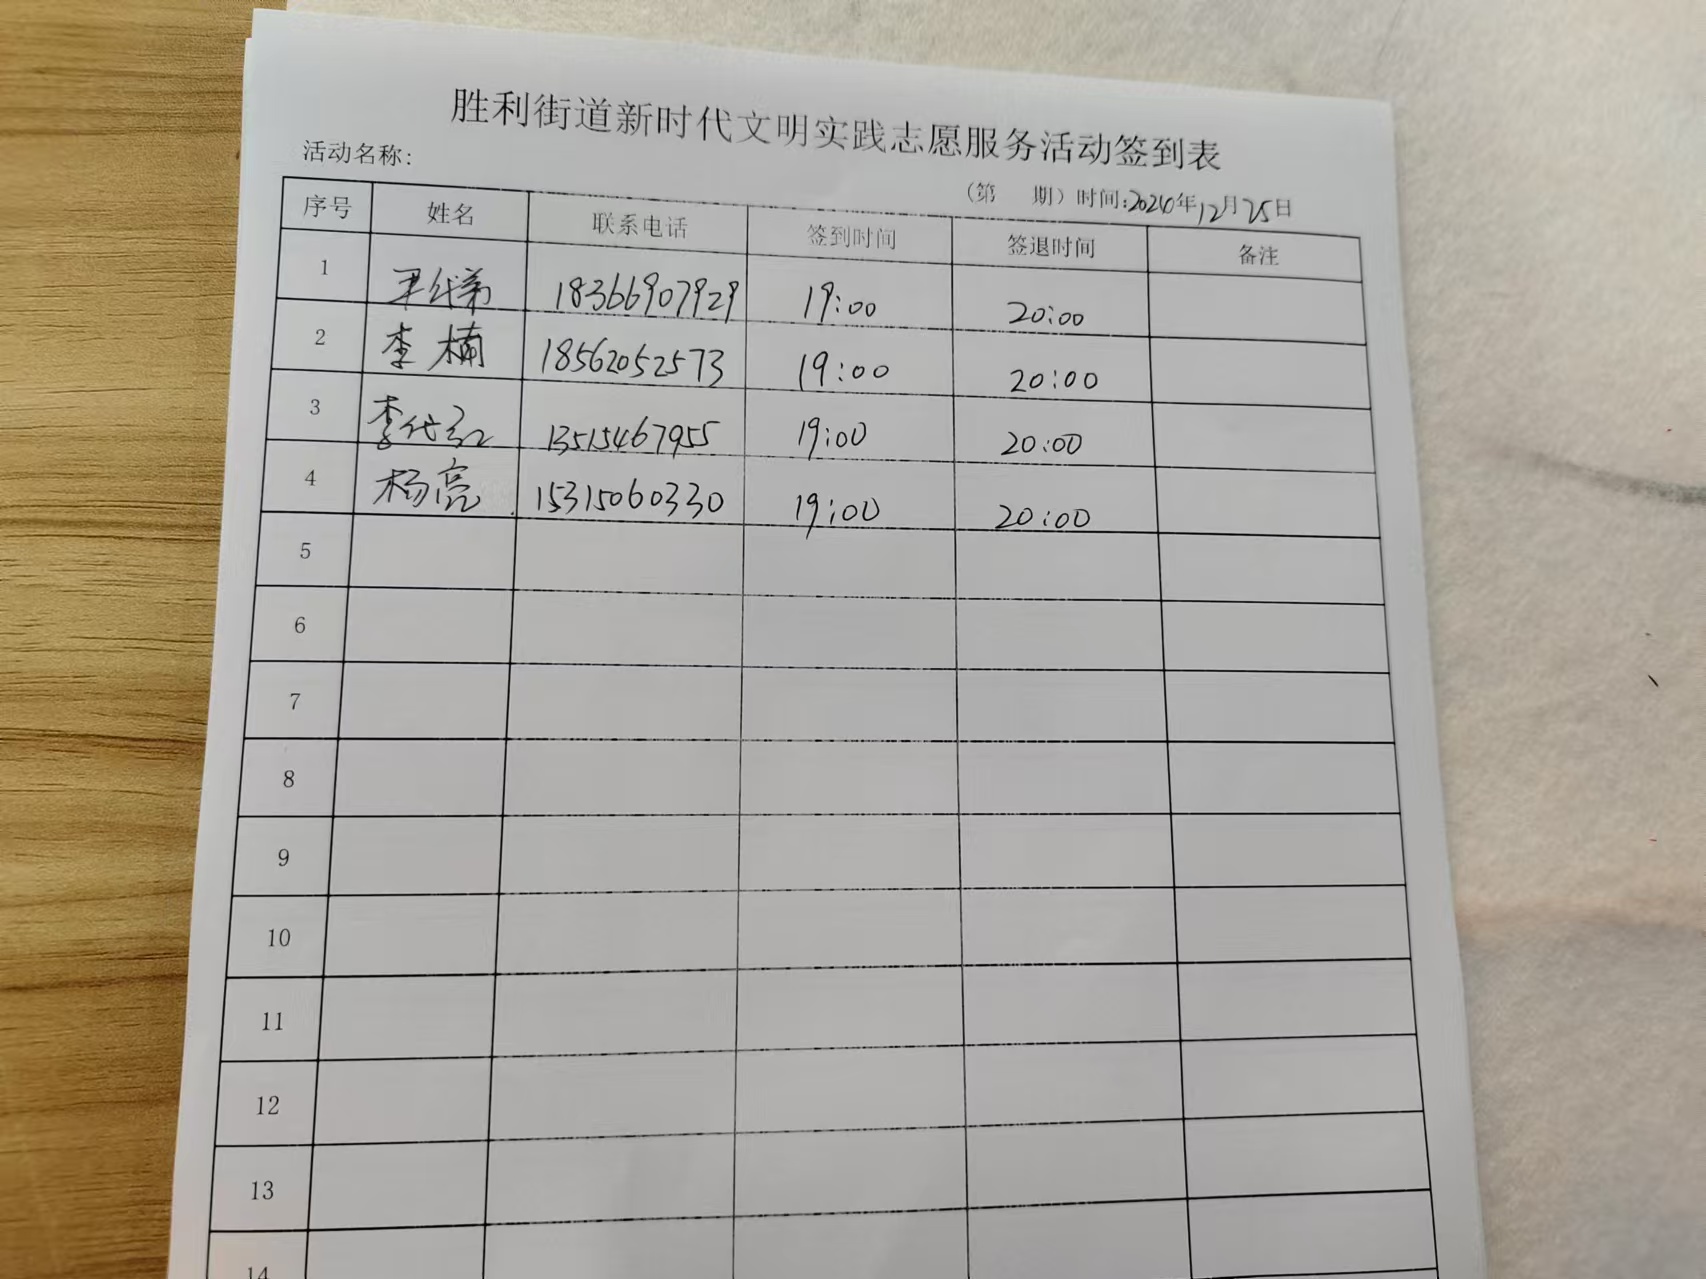 胜利街道新时代文明实践志愿服务活动签到表
活动名称:
(第 期) 时间:2024年12月25日
序号 姓名 联系电话 签到时间 签退时间 备注
1 18366907929 19:00 20:00
2 李楠 18562052573 19:00 20:00
3 李代红 13515467955 19:00 20:00
4 杨亮 15315060330 19:00 20:00
5
6
7
8
9
10
11
12
13
14